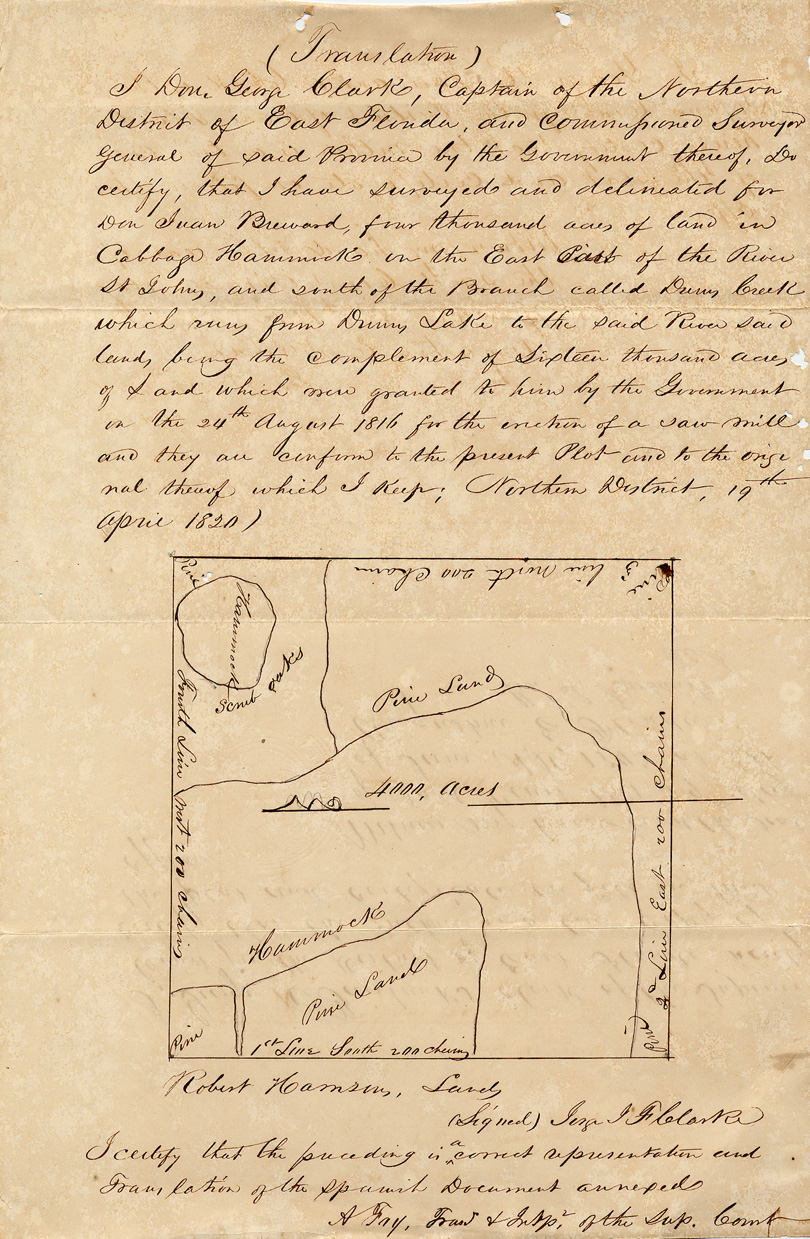 (Translation)
I Don George Clark, Captain of the Northern
District of East Florida, and Commissioned Surveyor
General of said Province by the Government thereof, Do
certify, that I have surveyed and delineated for
Don Juan Breward, four thousand acres of land in
Cabbage Hammock on the East Part of the River
St Johns, and south of the Branch called Dunns Creek
which runs from Dunns Lake to the said River said
lands being the complement of Sixteen thousand acres
of Land which were granted to him by the Government
on the 24th August 1816 for the erection of a saw mill
and they are conform to the present Plot and to the origi
nal thereof which I Keep; Northern District, 19th
April 1820)
Pine
3d line north 200 Chains
Pine
Hammock
Scrub oaks
Pine Land
Fourth Line West 200 chains
4000, Acres
2d Line East 200 chains
Hammock
Pine Land
Pine
1st Line South 200 chains
Pine
Robert Harrisons, Lands
(Signed) Jorge J F Clarke
I certify that the preceding is a correct representation and
Translation of the Spanish Document annexed
A Fay, Trans & Intpr. of the Sup. Court